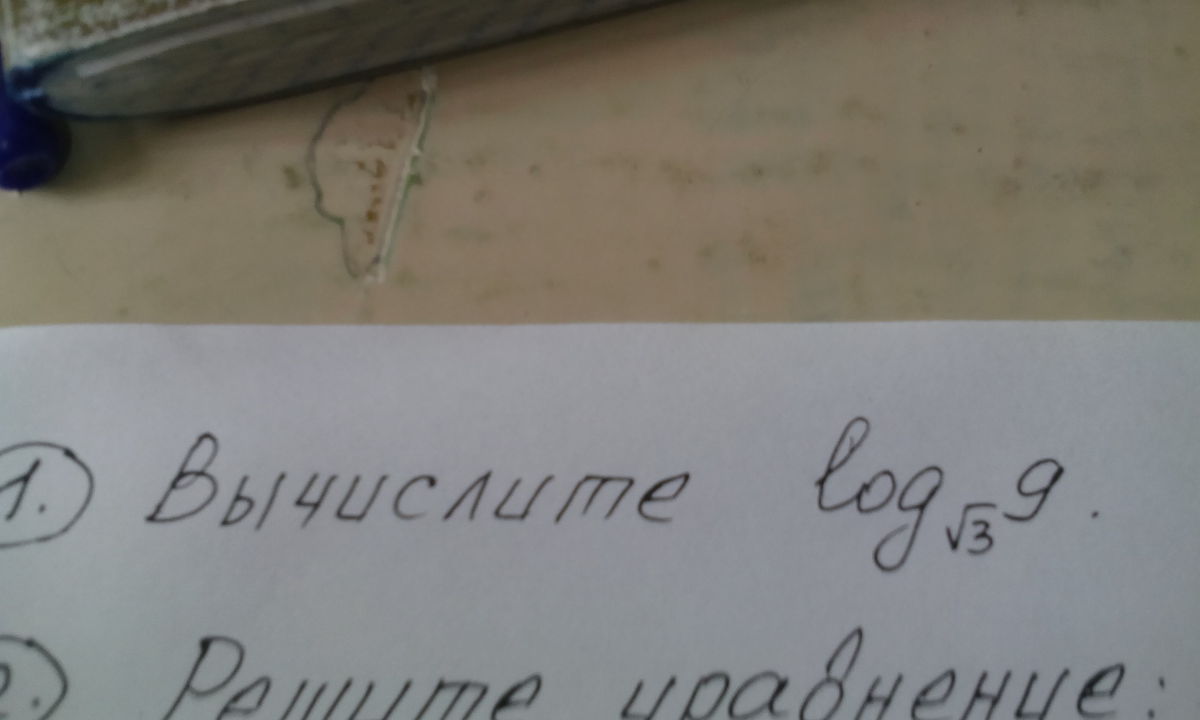 1. Вычислите log√3 9.
2. Решите уравнение: